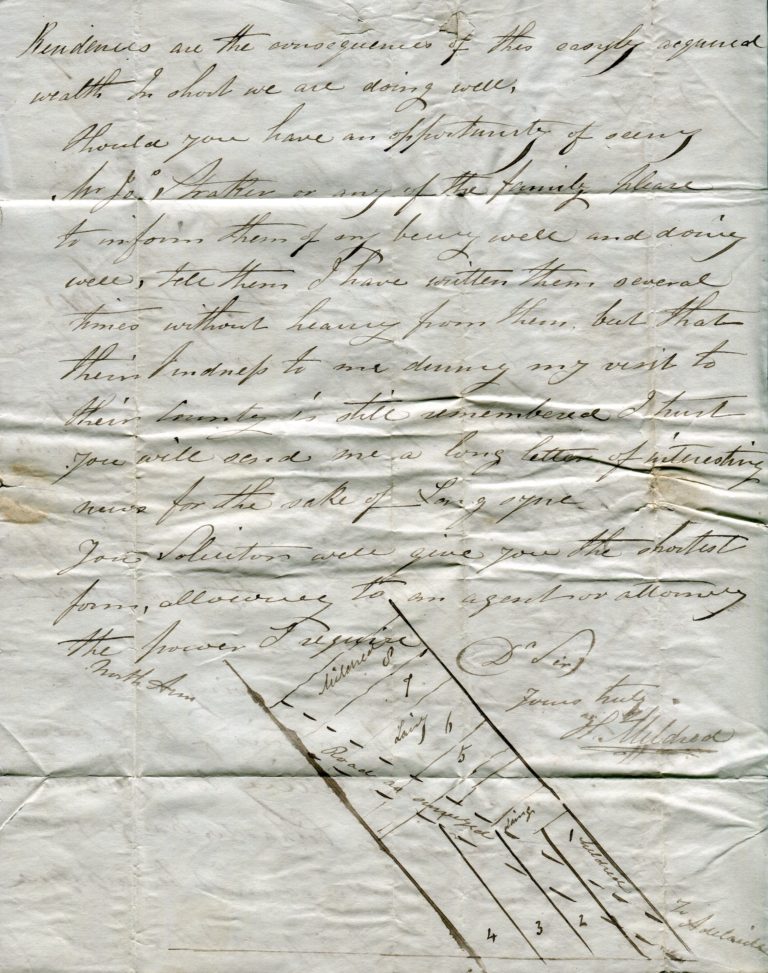 Residences are the consequences of this easyly acquired
wealth In short we are doing well,
Should you have an opportunity of seeing
Mr Jaˢ Straker or any of the family please
to inform them of my being well and doing
well, tell them I have written them several
times without hearing from them, but that
their kindness to me during my visit to
their County is still remembered I trust
you will send me a long letter of interesting
news for the sake of Lang syne
Your Solicitors well give you the shortest
form, allowing to an agent or attorney
the power I require
Dʳ Sir
Yours truly
H. Mildred
North Arm
Mildred 8
7
Laing 6
5
Road as surveyed
Laing
Mildred
4 3 2
To Adelaide